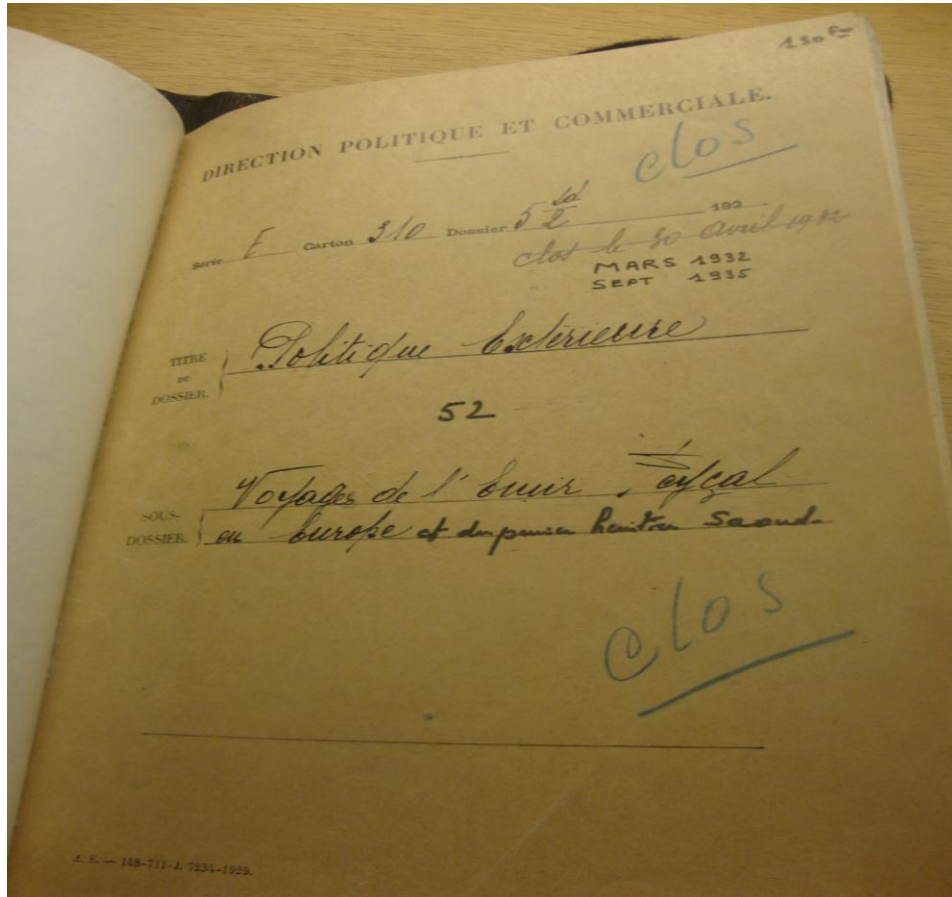 130 F
DIRECTION POLITIQUE ET COMMERCIALE.
clos
Série E Carton 310 Dossier 5 sd/2 192
clos le 30 avril 1932
MARS 1932
SEPT 1935
TITRE DU DOSSIER. Politique Extérieure
52
SOUS-DOSSIER. Voyages de l'Emir Feyçal
en Europe et du prince héritier Saoud.
clos
A. E. — 108-711-J. 7234-1929.